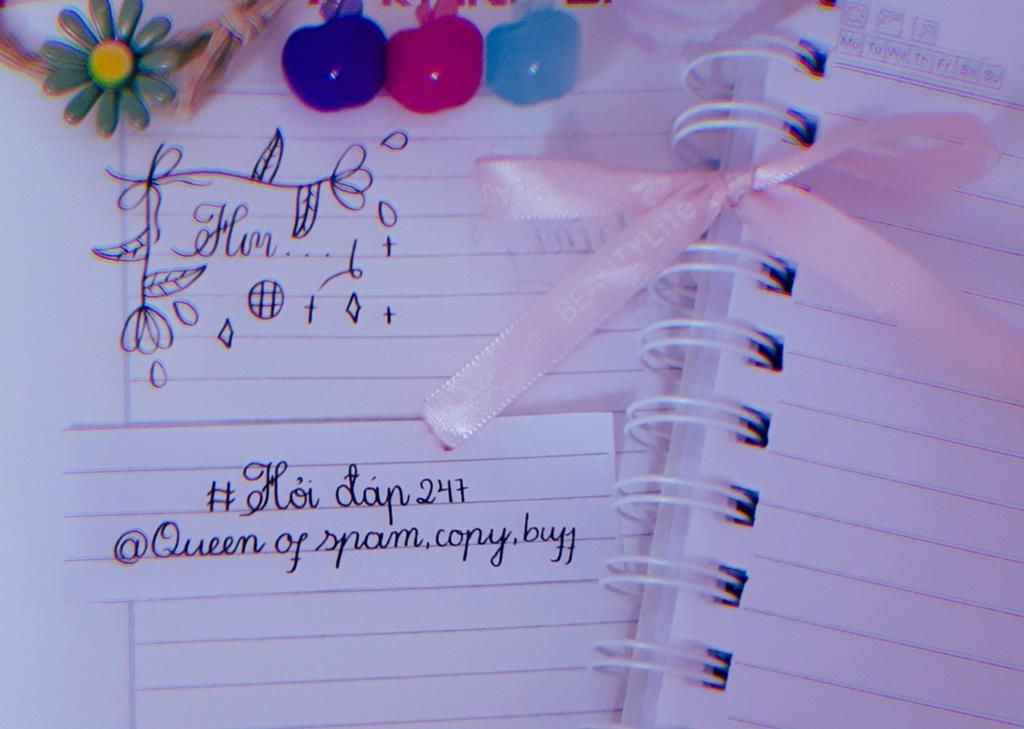 Mo Tu We Th Fr Sa Su
BEAUTYLife
# Hỏi đáp 247
@Queen of spam,copy,buff